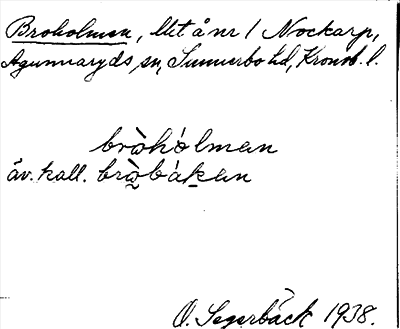 Broholmen, Ut å nr 1 Nockarp,
Agunnaryds sn, Sunnerbo hd, Kronob. l.
bròhólman
äv. kall. bròbákan
O. Segerbäck 1938.